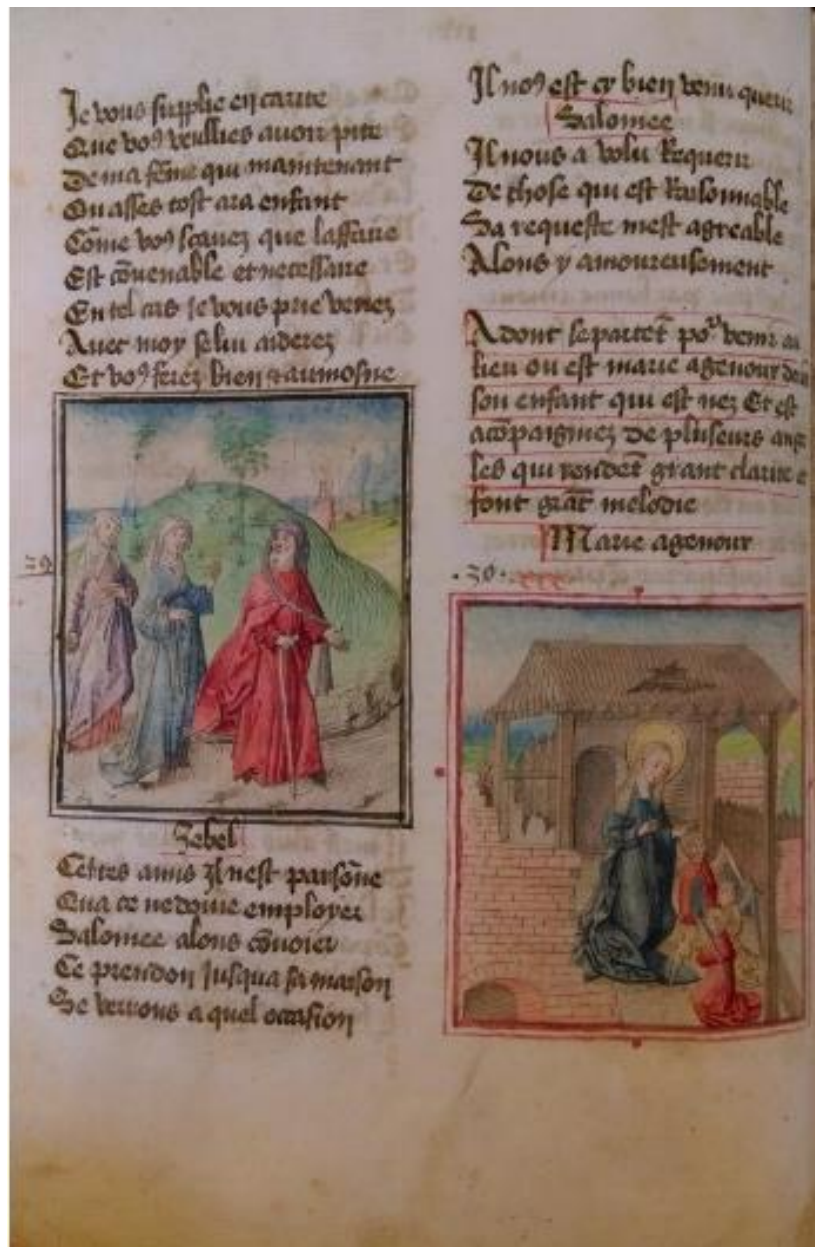 Je vous supplie en carite
Que vos veullies avoir pite
De ma fēme qui maintenant
Ou asses tost ara enfant
Cōme vos scavez que laffaire
Est cōvenable et necessaire
En tel cas je vous prie venez
Avec moy se lui aiderez
Et vos ferez bien et aumosne
29
Zebel
Certes amis il nest parsōne
Qua ce ne doivie employer
Salomee alons cōvoier
Ce preudon jusqua sa maison
Se verrons a quel occasion
Il nos est cy bien venu querir
Salomee
Il nous a volu requerir
De chose qui est raisonnable
Sa requeste mest agreable
Alons y amoureusement
Adont se partēt pour venir au
lieu ou est marie a genoux
son enfant qui est nez Et est
acōpaigniez de pluseurs ang
les qui rendēt grant clarte e
font grāt melodie
Marie a genoux
.30.